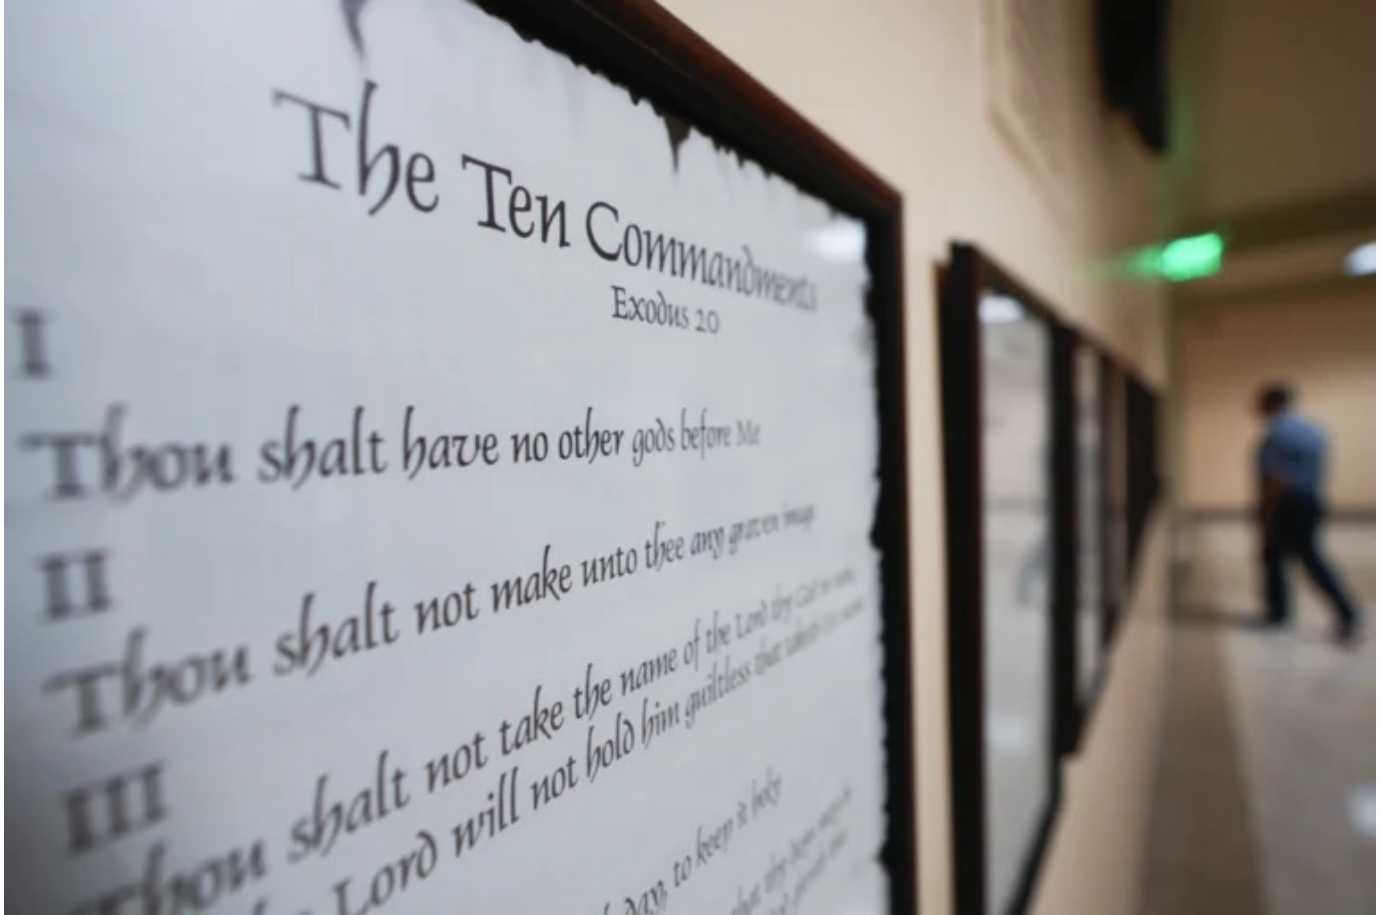 The Ten Commandments
Exodus 20
I
Thou shalt have no other gods before Me
II
Thou shalt not make unto thee any graven image
III
Thou shalt not take the name of the Lord thy God in vain
Lord will not hold him guiltless that taketh His name
day, to keep it holy
that thy days